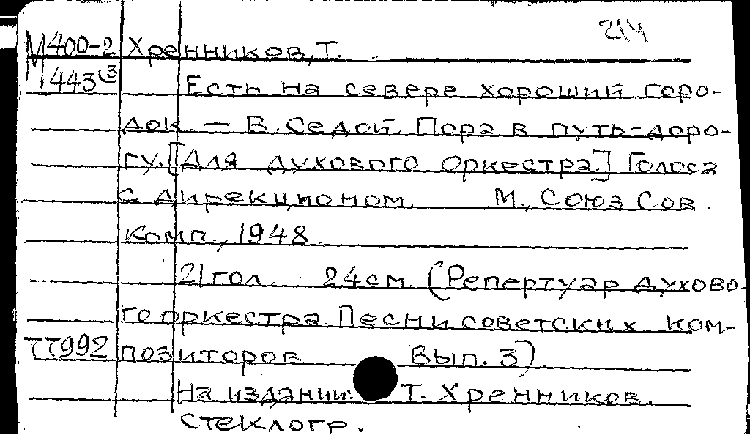 214
М400-2 Хренников, Т.
443(3 Есть на севере хороший горо-
док — В. Седой. Пора в путь-доро-
гу. [Для духового оркестра.] Голоса
с дирекционом. М., Союз Сов.
Комп., 1948.
21 гол. 24 см. (Репертуар духово-
го оркестра. Песни советских ком-
77992 позиторов. Вып. 3).
На издании: Т. Хренников.
стеклогр.